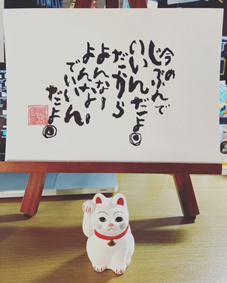 今の
じぶんで
いいんだよ
だから
よんなー
よんなーで
いいん
だよ